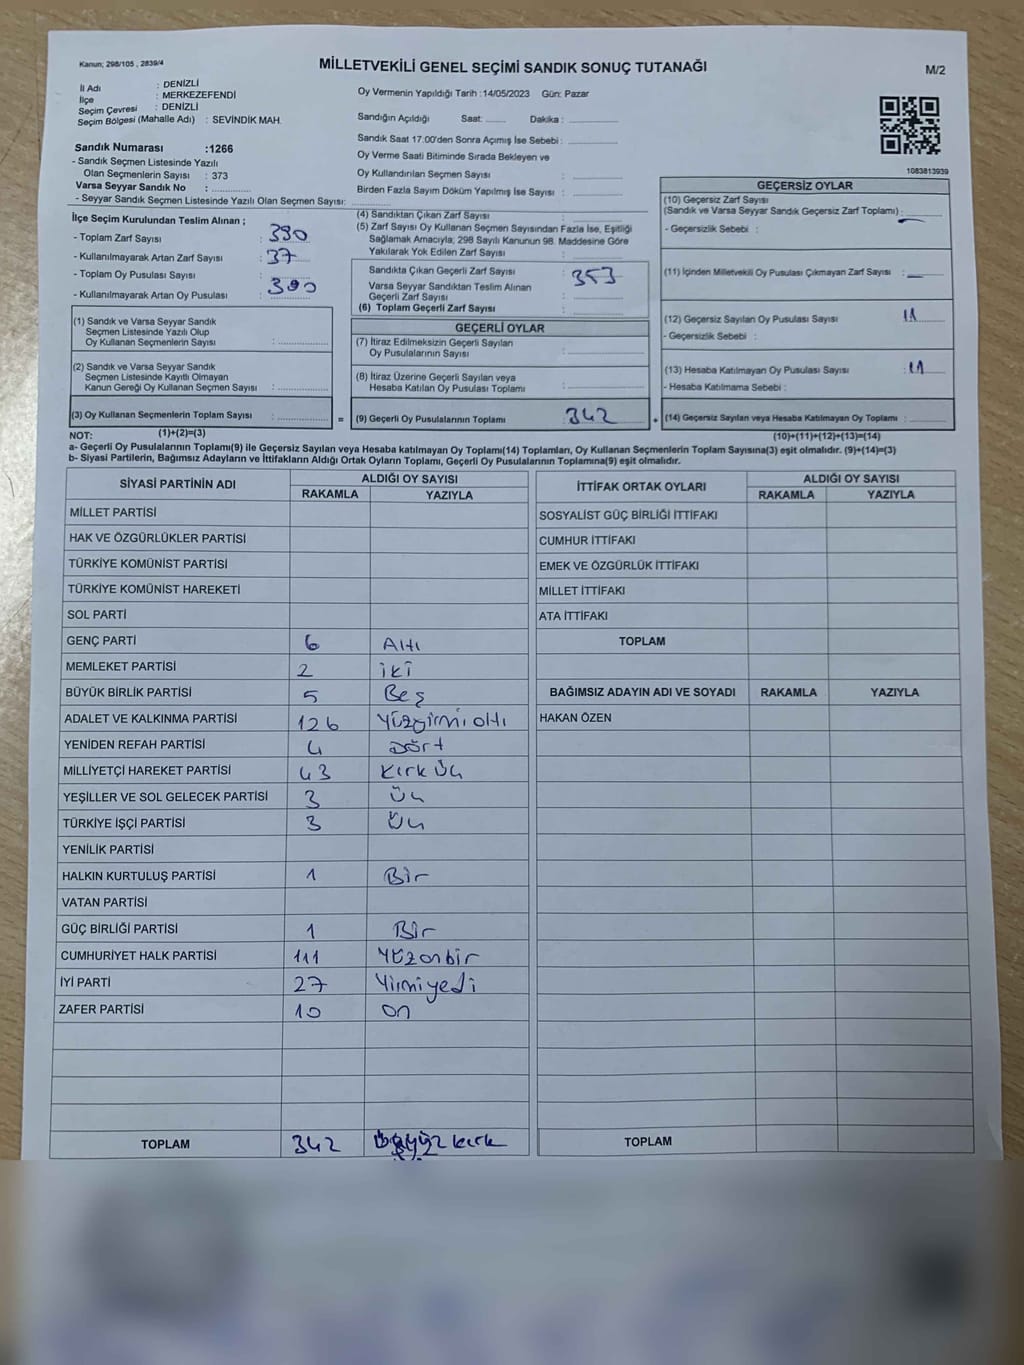 Kanun; 298/105 , 2839/4
MİLLETVEKİLİ GENEL SEÇİMİ SANDIK SONUÇ TUTANAĞI
M/2
İl Adı : DENİZLİ
İlçe : MERKEZEFENDİ
Seçim Çevresi : DENİZLİ
Seçim Bölgesi (Mahalle Adı) : SEVİNDİK MAH.
Sandık Numarası :1266
- Sandık Seçmen Listesinde Yazılı
Olan Seçmenlerin Sayısı : 373
Varsa Seyyar Sandık No :
- Seyyar Sandık Seçmen Listesinde Yazılı Olan Seçmen Sayısı:
Oy Vermenin Yapıldığı Tarih :14/05/2023 Gün: Pazar
Sandığın Açıldığı Saat: Dakika :
Sandık Saat 17.00'den Sonra Açımış İse Sebebi :
Oy Verme Saati Bitiminde Sırada Bekleyen ve
Oy Kullandırılan Seçmen Sayısı :
Birden Fazla Sayım Döküm Yapılmış İse Sayısı :
1083813939
İlçe Seçim Kurulundan Teslim Alınan ;
- Toplam Zarf Sayısı : 390
- Kullanılmayarak Artan Zarf Sayısı : 37
- Toplam Oy Pusulası Sayısı : 390
- Kullanılmayarak Artan Oy Pusulası :
(1) Sandık ve Varsa Seyyar Sandık
Seçmen Listesinde Yazılı Olup
Oy Kullanan Seçmenlerin Sayısı :
(2) Sandık ve Varsa Seyyar Sandık
Seçmen Listesinde Kayıtlı Olmayan
Kanun Gereği Oy Kullanan Seçmen Sayısı :
(3) Oy Kullanan Seçmenlerin Toplam Sayısı :
(1)+(2)=(3)
(4) Sandıktan Çıkan Zarf Sayısı :
(5) Zarf Sayısı Oy Kullanan Seçmen Sayısından Fazla İse, Eşitliği
Sağlamak Amacıyla, 298 Sayılı Kanunun 98. Maddesine Göre
Yakılarak Yok Edilen Zarf Sayısı :
Sandıkta Çıkan Geçerli Zarf Sayısı : 353
Varsa Seyyar Sandıktan Teslim Alınan
Geçerli Zarf Sayısı :
(6) Toplam Geçerli Zarf Sayısı :
GEÇERLİ OYLAR
(7) İtiraz Edilmeksizin Geçerli Sayılan
Oy Pusulalarının Sayısı :
(8) İtiraz Üzerine Geçerli Sayılan veya
Hesaba Katılan Oy Pusulası Toplamı :
= (9) Geçerli Oy Pusulalarının Toplamı 342 +
GEÇERSİZ OYLAR
(10) Geçersiz Zarf Sayısı
(Sandık ve Varsa Seyyar Sandık Geçersiz Zarf Toplamı) : —
- Geçersizlik Sebebi :
(11) İçinden Milletvekili Oy Pusulası Çıkmayan Zarf Sayısı : —
(12) Geçersiz Sayılan Oy Pusulası Sayısı 11
- Geçersizlik Sebebi :
(13) Hesaba Katılmayan Oy Pusulası Sayısı : 11
- Hesaba Katılmama Sebebi :
(14) Geçersiz Sayılan veya Hesaba Katılmayan Oy Toplamı :
(10)+(11)+(12)+(13)=(14)
NOT:
a- Geçerli Oy Pusulalarının Toplamı(9) ile Geçersiz Sayılan veya Hesaba katılmayan Oy Toplamı(14) Toplamları, Oy Kullanan Seçmenlerin Toplam Sayısına(3) eşit olmalıdır. (9)+(14)=(3)
b- Siyasi Partilerin, Bağımsız Adayların ve İttifakların Aldığı Ortak Oyların Toplamı, Geçerli Oy Pusulalarının Toplamına(9) eşit olmalıdır.
SİYASİ PARTİNİN ADI ALDIĞI OY SAYISI
RAKAMLA YAZIYLA
MİLLET PARTİSİ
HAK VE ÖZGÜRLÜKLER PARTİSİ
TÜRKİYE KOMÜNİST PARTİSİ
TÜRKİYE KOMÜNİST HAREKETİ
SOL PARTİ
GENÇ PARTİ 6 Altı
MEMLEKET PARTİSİ 2 iki
BÜYÜK BİRLİK PARTİSİ 5 Beş
ADALET VE KALKINMA PARTİSİ 126 Yüzyirmi altı
YENİDEN REFAH PARTİSİ 4 Dört
MİLLİYETÇİ HAREKET PARTİSİ 43 Kırk Üç
YEŞİLLER VE SOL GELECEK PARTİSİ 3 Üç
TÜRKİYE İŞÇİ PARTİSİ 3 Üç
YENİLİK PARTİSİ
HALKIN KURTULUŞ PARTİSİ 1 Bir
VATAN PARTİSİ
GÜÇ BİRLİĞİ PARTİSİ 1 Bir
CUMHURİYET HALK PARTİSİ 111 Yüzonbir
İYİ PARTİ 27 Yirmiyedi
ZAFER PARTİSİ 10 On
TOPLAM 342 kırk
İTTİFAK ORTAK OYLARI ALDIĞI OY SAYISI
RAKAMLA YAZIYLA
SOSYALİST GÜÇ BİRLİĞİ İTTİFAKI
CUMHUR İTTİFAKI
EMEK VE ÖZGÜRLÜK İTTİFAKI
MİLLET İTTİFAKI
ATA İTTİFAKI
TOPLAM
BAĞIMSIZ ADAYIN ADI VE SOYADI RAKAMLA YAZIYLA
HAKAN ÖZEN
TOPLAM